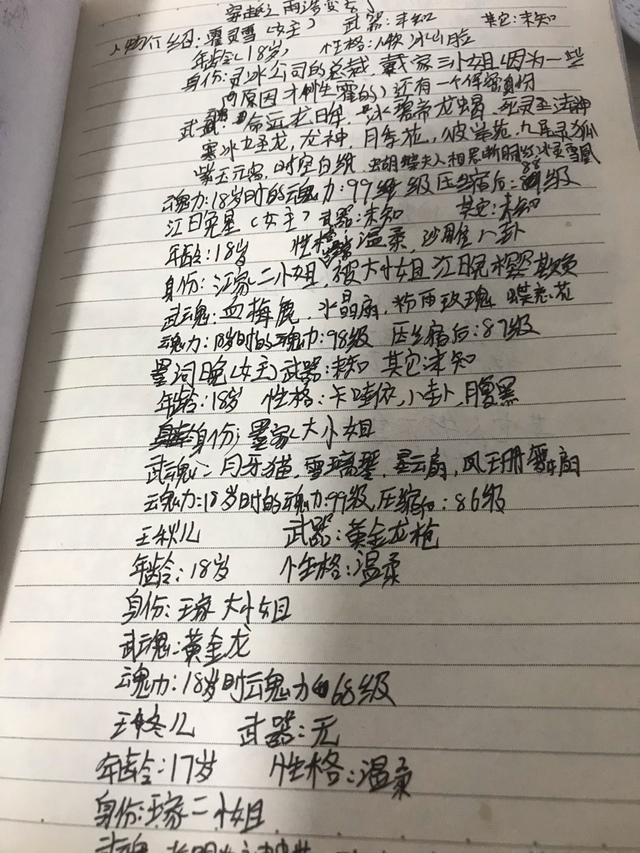 人物介绍:霍灵雪(女主) 武器:未知 其它:未知
年龄:18岁, 性格: 冰山脸
身份:灵冰公司的总裁,戴家三小姐(因为一些
原因才姓霍的)还有一个保密身份
武魂: 命运龙眸,冰碧帝 死灵圣法神
寒冰 龙,龙神,月季花, 九尾灵狐
紫玉 ,时空白纸,蝴蝶夫人相思断肠 冰灵雪凰
魂力:18岁时的魂力:99级 压缩后:88级
江日晚星(女主)武器:未知 其它:未知
年龄:18岁 性格: 温柔,沙雕八卦
身份:江家二小姐,被大小姐江晚樱欺负
武魂:血梅鹿,水晶扇,粉雨玫瑰
魂力:18岁时的魂力:98级 压缩后:87级
墨词晚(女主)武器:未知 其它:未知
年龄:18岁 性格:卡哇依,八卦,腹黑
身份:墨家大小姐
武魂:月牙猫,雪璃琴,星云扇,
魂力:18岁时的魂力:99级,压缩后:86级
王秋儿 武器:黄金龙枪
年龄:18岁 性格:温柔
身份:王家大小姐
武魂:黄金龙
魂力:18岁时魂力 68级
王冬儿 武器:无
年龄:17岁 性格:温柔
身份:王家二小姐
武魂: